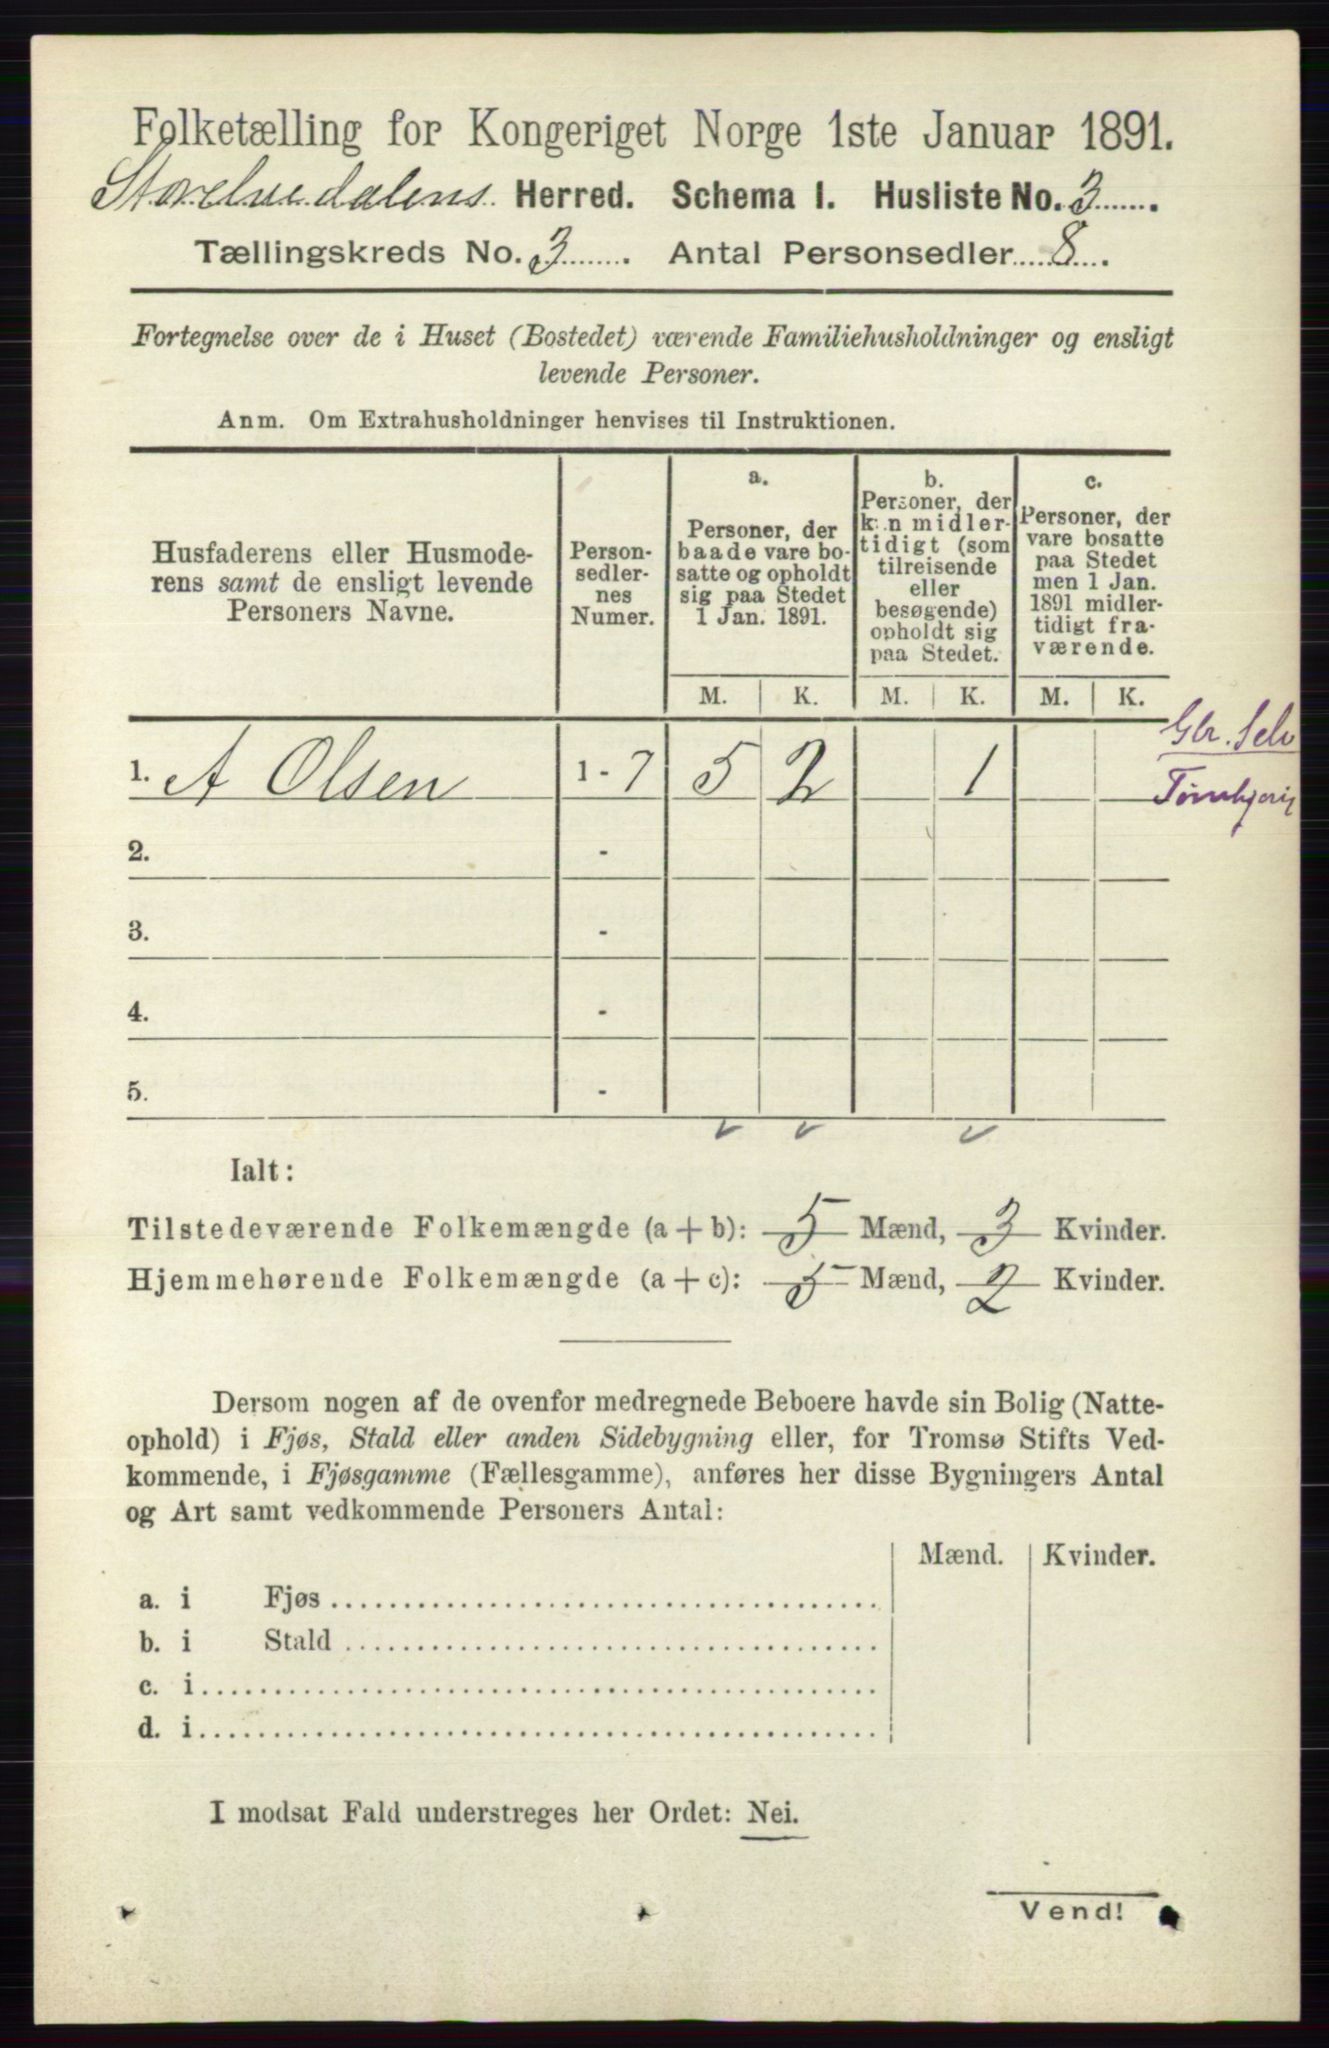 Folketælling for Kongeriget Norge 1ste Januar 1891.
Storelvedalens Herred. Schema I. Husliste No. 3
Tællingskreds No. 3. Antal Personsedler 8.
Fortegnelse over de i Huset (Bostedet) værende Familiehusholdninger og ensligt
levende Personer.
Anm. Om Extrahusholdninger henvises til Instruktionen.
Husfaderens eller Husmode-
rens samt de ensligt levende
Personers Navne.
Person-
sedler-
nes
Numer.
a.
Personer, der
baade vare bo-
satte og opholdt
sig paa Stedet
1 Jan. 1891.
b.
Personer, der
kun midler-
tidigt (som
tilreisende
eller
besøgende)
opholdt sig
paa Stedet.
c.
Personer, der
vare bosatte
paa Stedet
men 1 Jan.
1891 midler-
tidigt fra-
værende.
M. K. M. K. M. K.
1. A Olsen 1 - 7 5 2 1
Gbr. Selv
2. -
3. -
4. -
5. -
Ialt:
Tilstedeværende Folkemængde (a + b): 5 Mænd, 3 Kvinder.
Hjemmehørende Folkemængde (a + c): 5 Mænd, 2 Kvinder.
Dersom nogen af de ovenfor medregnede Beboere havde sin Bolig (Natte-
ophold) i Fjøs, Stald eller anden Sidebygning eller, for Tromsø Stifts Ved-
kommende, i Fjøsgamme (Fællesgamme), anføres her disse Bygningers Antal
og Art samt vedkommende Personers Antal:
Mænd. Kvinder.
a. i Fjøs
b. i Stald
c. i
d. i
I modsat Fald understreges her Ordet: Nei.
Vend!